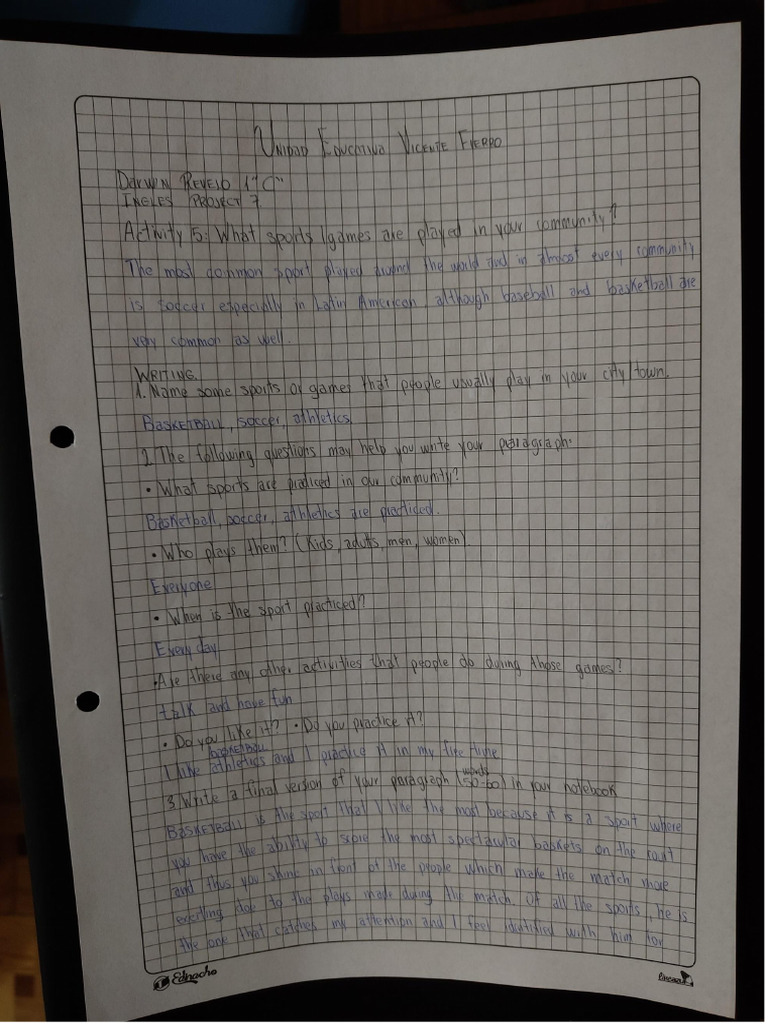 Unidad Educativa Vicente Fierro
Darwin Revelo 1"C"
Ingles Project 7
Activity 5: What sports/games are played in your community?
The most common sport played around the world and in almost every community
is soccer especially in Latin American, although baseball and basketball are
very common as well.
Writing.
1. Name some sports or games that people usually play in your city/town.
Basketball, soccer, athletics.
2. The following questions may help you write your paragraph.
• What sports are praticed in our community?
Basketball, soccer, athletics are practiced.
• Who plays them? (Kids, aduts, men, women).
Everyone
• When is the sport practiced?
Every day
• Are there any other activities that people do during those games?
talk and have fun
• Do you like it? • Do you practice it?
basketball
I like athletics and I practice it in my fire time
words
3. Write a final version of your paragraph (50-60) in your notebook
Basketball is the sport that I like the most because it is a sport where
you have the ability to score the most spectacular baskets on the
and thus you shine in front of the people which make the match more
exerting due to the plays made during the match. Of all the sports, he is
the one that catches my attention and I feel identified with him for
Ednacho